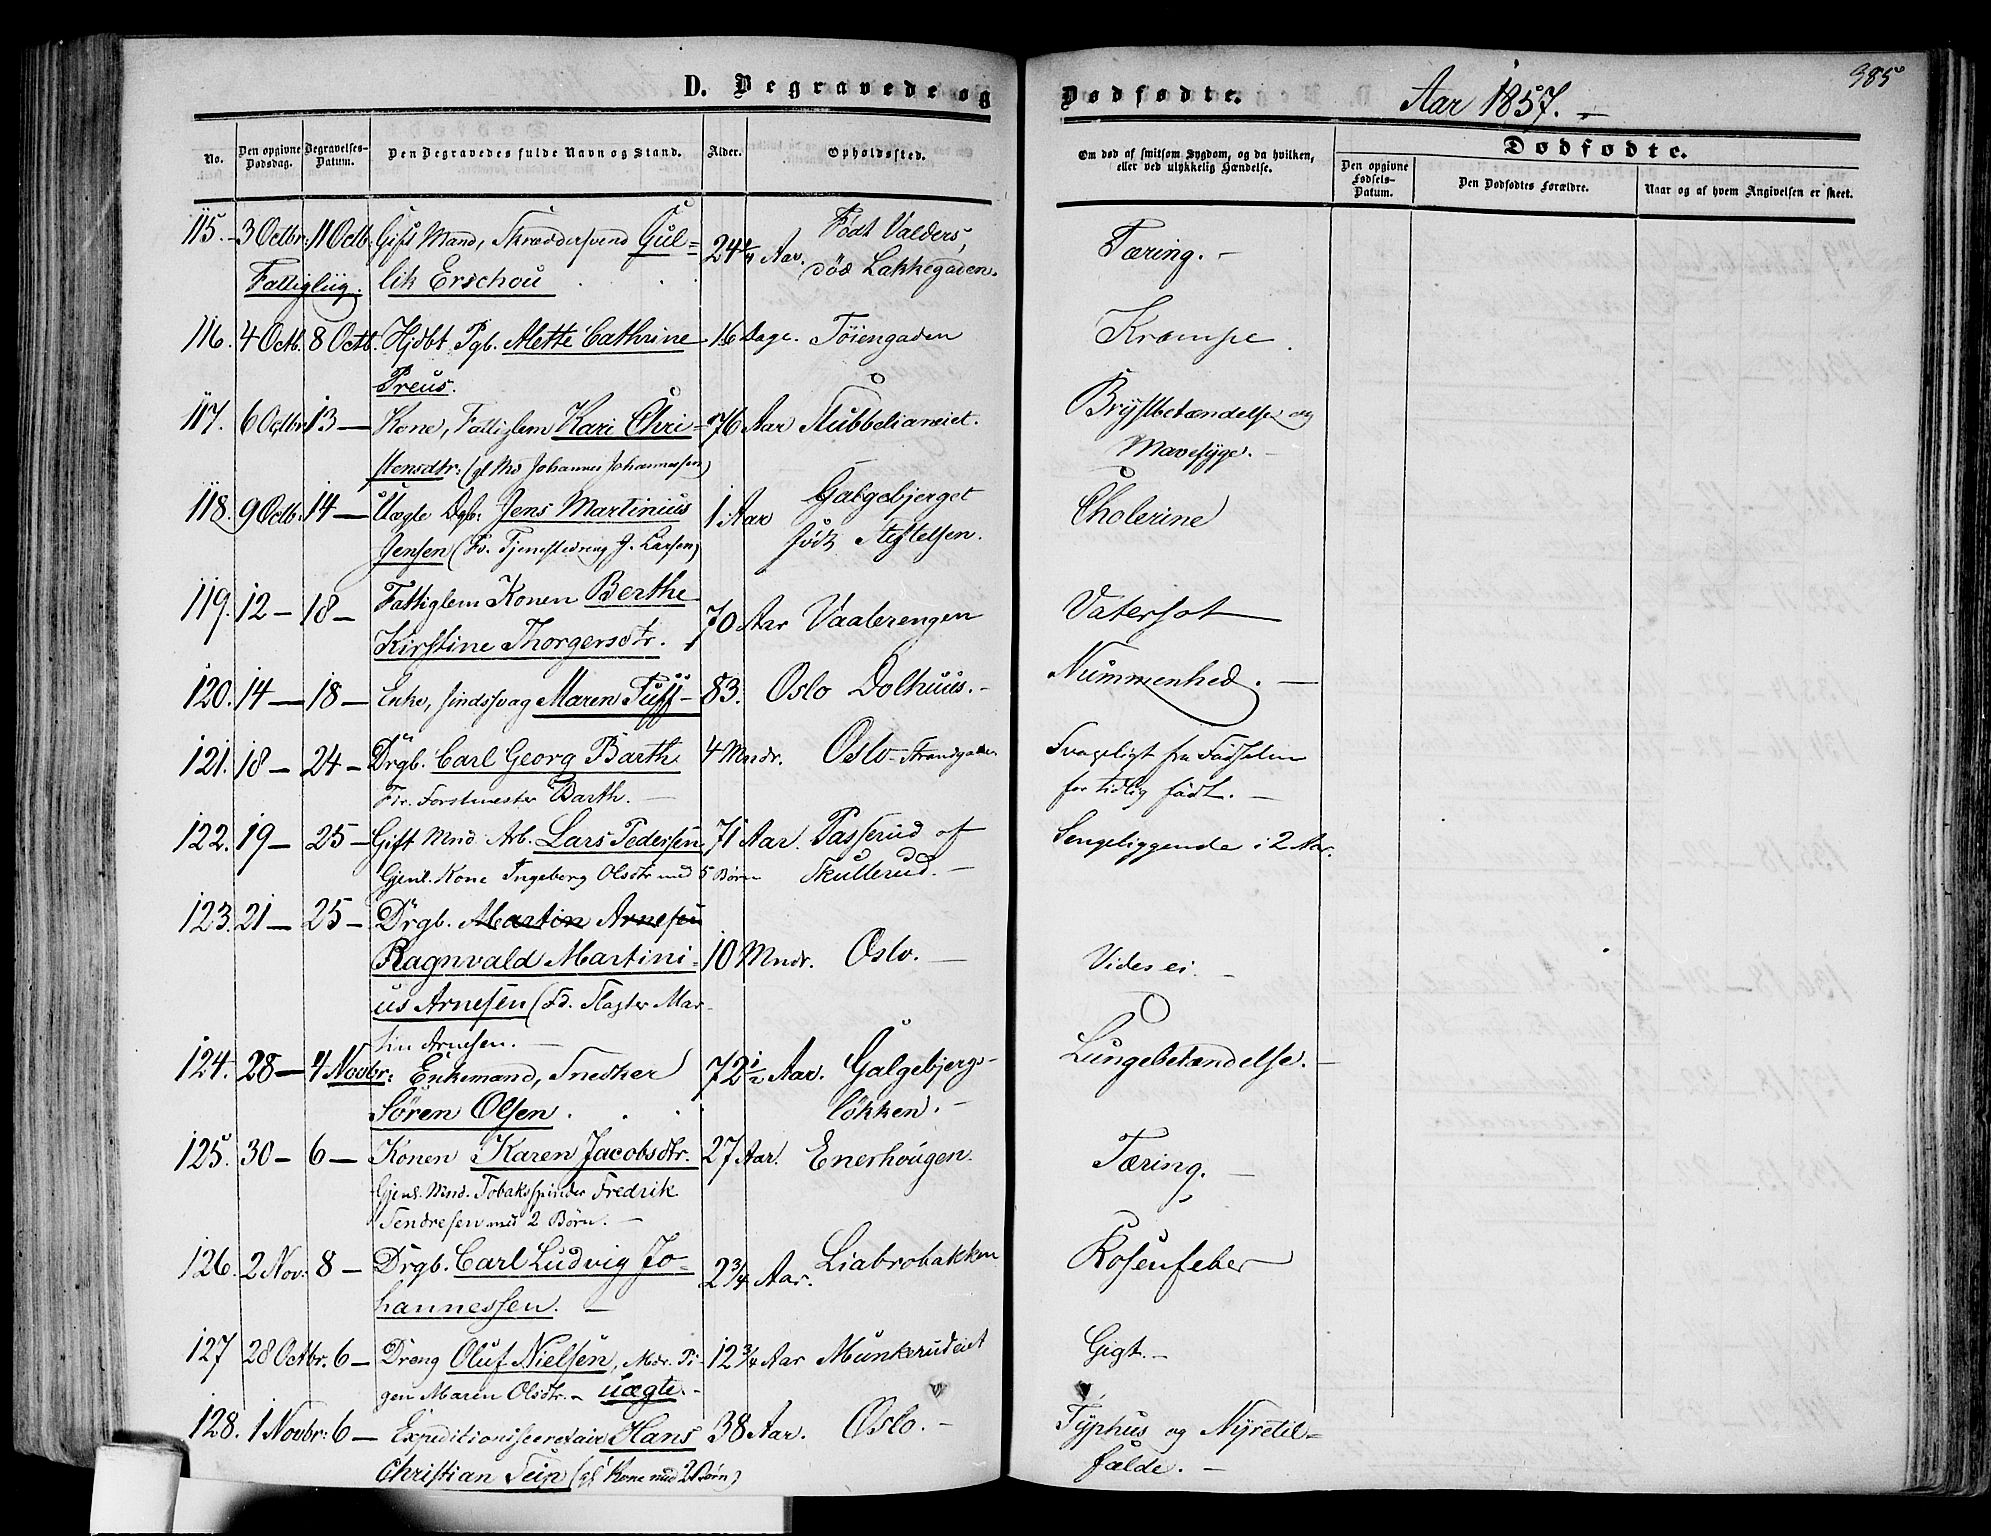 D. Begravede og Dødfødte. Aar 1857. 385
No. Den opgivne Dødsdag. Begravelses-Datum. Den Begravedes fulde Navn og Stand. Alder. Opholdssted. Om død af smitsom Sygdom, og da hvilken, eller ved ulykkelig Hændelse. Dødfødte. Den opgivne Fødsels-Datum. Den Dødfødtes Forældre. Naar og af hvem Angivelsen er skeet.
115. 3 Octbr: 11 Octb: Gift Mand, Skræddersvend Gul- 24 1/4 Aar. Født Valders, Tæring.
Fattigliig. lik Erschou død Lakkegaden.
116. 4 Octb. 8 Octb. Hjdbt Pgb. Mette Cathrine 16 Dage. Tøiengaden Krampe.
Preus.
117. 6 Octbr 13 — Kone, Fattiglem Kari Chri- 76 Aar Stubbelianeiet. Brystbetændelse og
stensdtr: (gl Md Johannes Johannessen) Mavesyge.
118. 9 Octb. 14 — Uægte Dgb: Jens Martinius 1 Aar Galgebjerget Cholerine
Jensen (Fd. Tjenestedreng J. Larsen) født Stiftelsen.
119. 12 — 18 — Fattiglem Konen Berthe 70 Aar Vaalerengen Vatersot
Kirstine Thorgersdtr.
120. 14 — 18 — Enke, sindssvag Maren Tuff 83. Oslo Dolhuus. Nummenhed.
121. 18 — 24 — Drgb. Carl Georg Barth 4 Mndr. Oslo - Strandgaden Svageligt fra Fødselen
Fdr. Forstmester Barth. for tidlig født.
122. 19 — 25 — Gift Mnd. Arb. Lars Pedersen 71 Aar. Passerud af Sengeliggende i 2 Aar.
Gjenl. Kone Ingeborg Olsdtr med 5 Børn Skullerud.
123. 21 — 25 — Drgb. Martin Arnesen
Ragnvald Martini- 10 Mndr. Oslo. Vides ei.
us Arnesen (Fd. Slagter Mar-
tin Arnesen.
124. 28 — 4 Novbr: Enkemand, Snedker 72 1/2 Aar. Galgebjerg- Lungebetændelse.
Søren Olsen. løkken.
125. 30 — 6 — Konen Karen Jacobsdtr. 27 Aar. Enerhougen. Tæring.
Gjenl. Mnd. Tobaksspinder Fredrik
Sendresen med 2 Børn.
126. 2 Nov: 8 — Drgb. Carl Ludvig Jo- 2 3/4 Aar. Liabrobakken Rosenfeber
hannessen.
127 28 Octbr. 6 — Dreng Oluf Nielsen, Mdr. Pi- 12 3/4 Aar Munkerudeiet Gigt.
gen Maren Olsdtr. - uægte.
128. 1 Novbr: 6 — Expeditionssecretair Hans 38 Aar. Oslo. Typhus og Nyretil-
Christian Seip (gl Kone med 2 Børn) fælde.